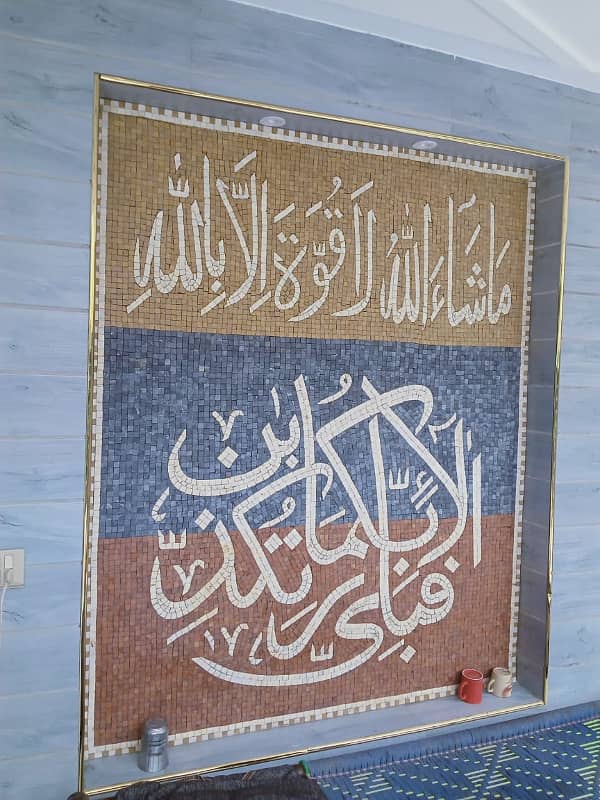 مَاشَاءَ اللهُ لَا قُوَّةَ إِلَّا بِاللهِ
فَبِاَيِّ اٰلَآءِ رَبِّكُمَا تُكَذِّبٰنِ